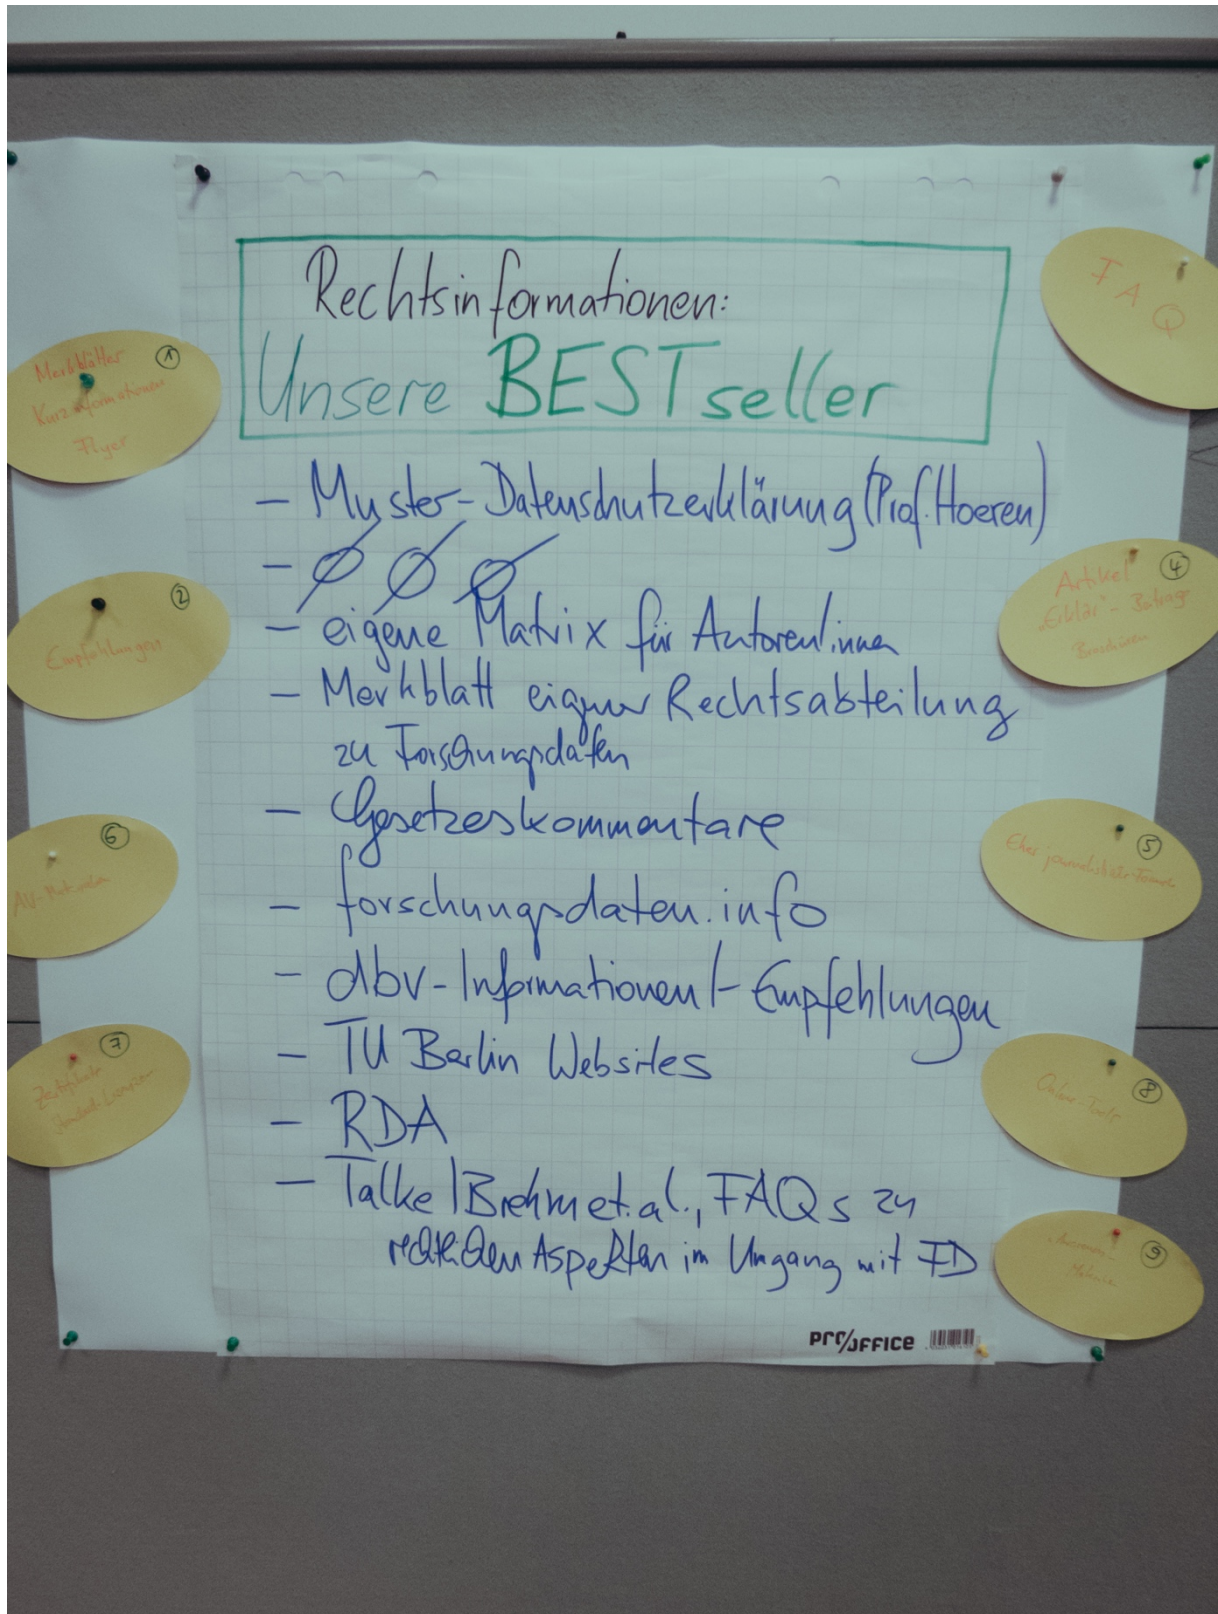 Rechtsinformationen:
Unsere BESTseller
- Muster-Datenschutzerklärung (Prof. Hoeren)
- Ø Ø Ø
- eigene Matrix für Autoren!innen
- Merkblatt eigener Rechtsabteilung
zu Forschungsdaten
- Gesetzeskommentare
- forschungsdaten.info
- dbv-Informationen/-Empfehlungen
- TU Berlin Websites
- RDA
- Talke/Brehm et.al., FAQs zu
rechtlichen Aspekten im Umgang mit FD
PRO/OFFICE
1
Merkblätter
Kurzinformationen
Flyer
2
Empfehlungen
6
AV-Materialien
7
Zertifikate
FAQ
4
Artikel
"Erklär"-Beiträge
Broschüren
5
Eher journalistische Formate
8
Online-Tools
9
Matrix